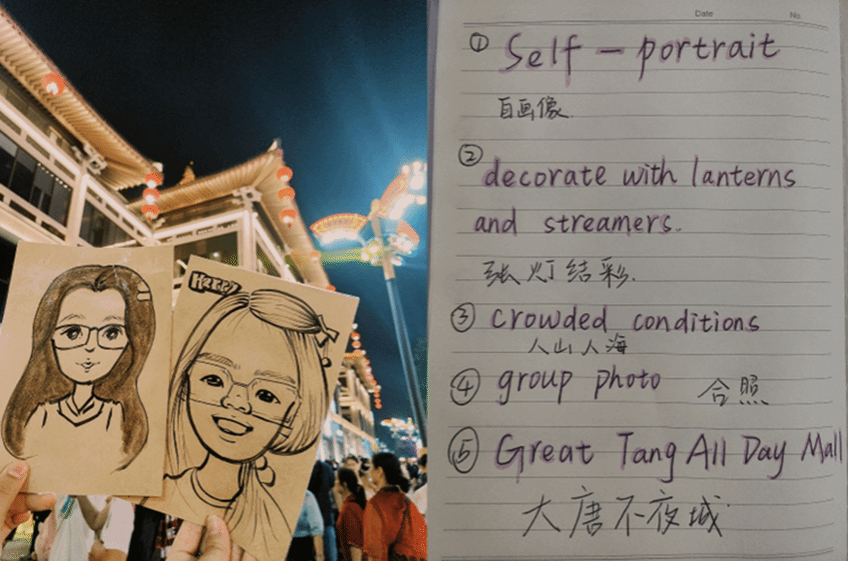 HAPPY
Date
No.
① Self - portrait
自画像.
② decorate with lanterns
and streamers.
张灯结彩.
③ crowded conditions
人山人海
④ group photo 合照
⑤ Great Tang All Day Mall
大唐不夜城